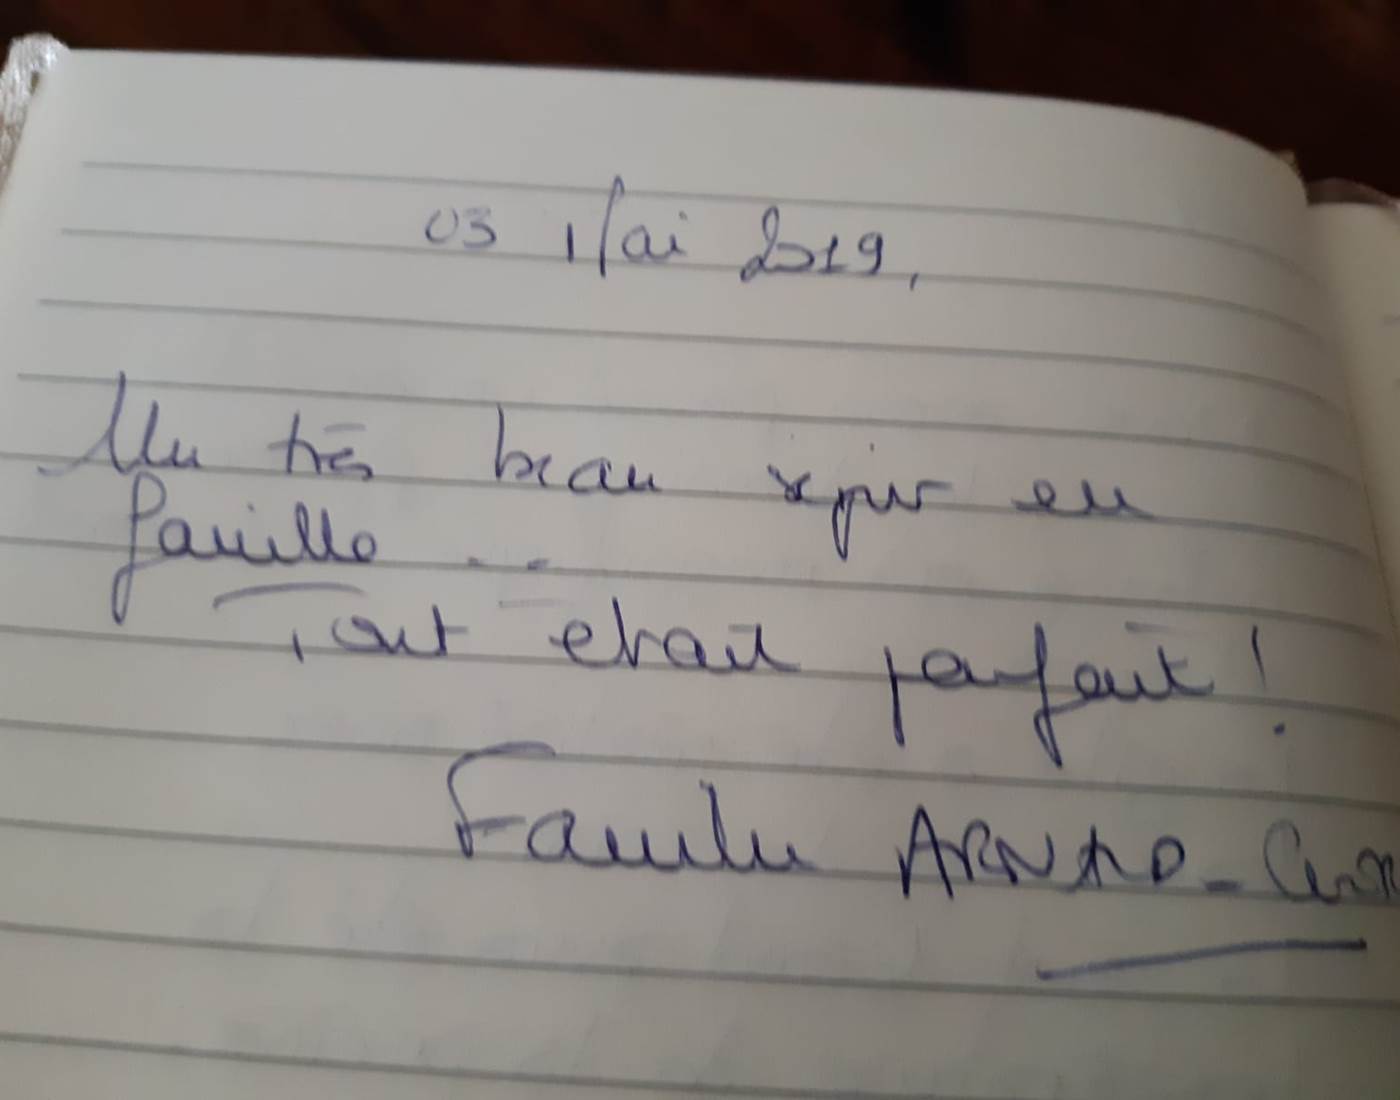 03 Mai 2019,
Un très beau séjour en
famille ..
Tout était parfait !
Famille ARNAD -